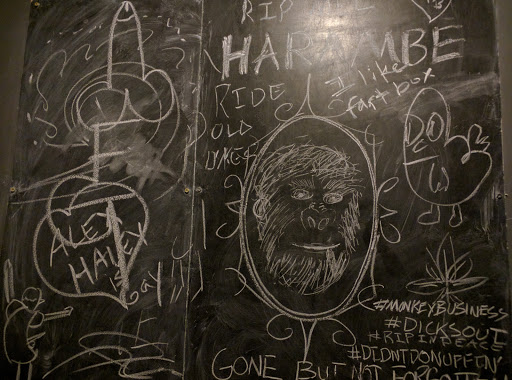 RIP
HARAMBE
I like
fart box
RIDE
OLD
ALEX
HALEY
is
Gay
#MONKEYBUSINESS
#DICKSOUT
#RIPINPEACE
#DIDNTDONUFFIN'
GONE BUT NOT FORGOTTEN